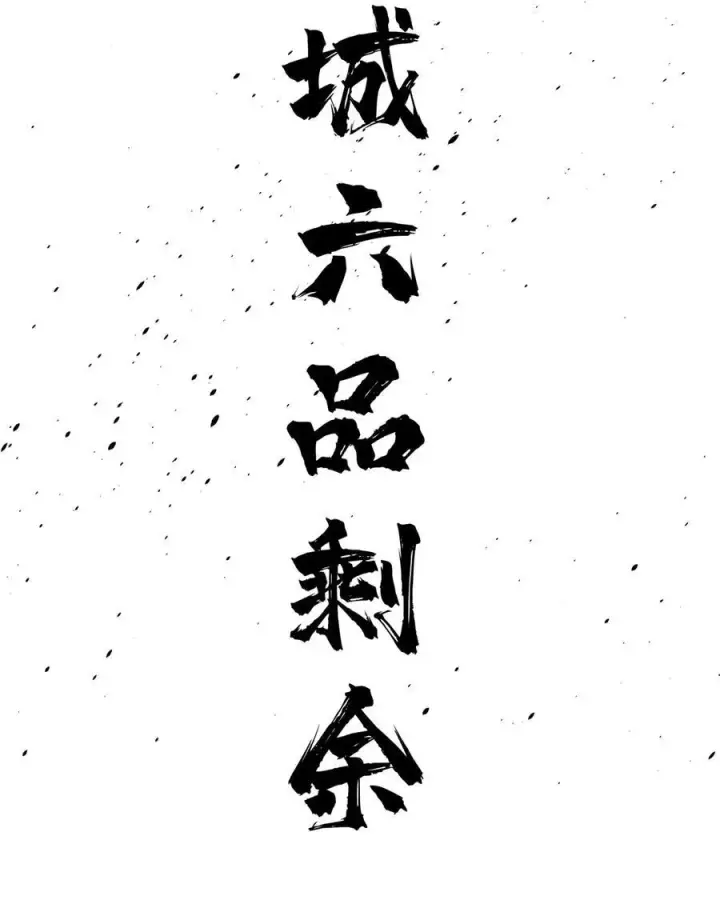 城六品剩余